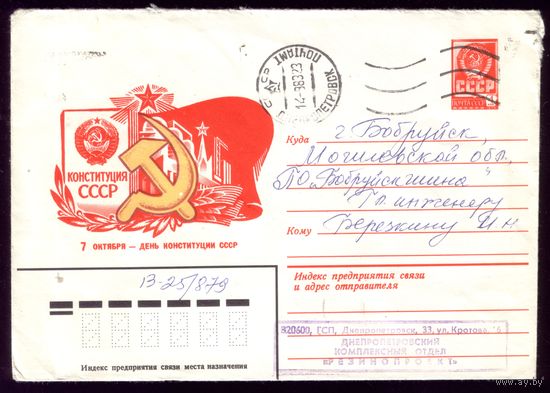 ПОЧТАМТ
14-9 83 23
СССР
ПОЧТА СССР
КОНСТИТУЦИЯ
СССР
7 ОКТЯБРЯ — ДЕНЬ КОНСТИТУЦИИ СССР
Куда г. Бобруйск,
Могилевской обл.,
ПО "Бобруйскшина"
Гл. инженеру
Кому Бережкину И.Н
Индекс предприятия связи
и адрес отправителя
13-25/879
820600, ГСП, Днепропетровск, 33, ул. Кротова, 16
ДНЕПРОПЕТРОВСКИЙ
КОМПЛЕКСНЫЙ ОТДЕЛ
"РЕЗИНОПРОЕКТ"
Индекс предприятия связи места назначения
www.ay.by